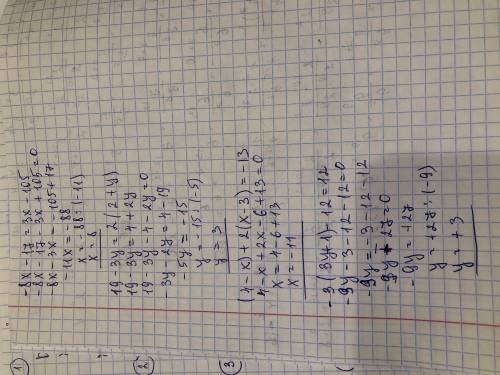 1) -8x - 17 = 3x - 105
-8x - 17 - 3x + 105 = 0
-8x - 3x = -105 + 17
-11x = -88
x = -88 : (-11)
x = 8
2) 19 - 3y = 2(2 + y)
19 - 3y = 4 + 2y
19 - 3y - 4 - 2y = 0
-3y - 2y = 4 - 19
-5y = -15
y = -15 : (-5)
y = 3
3) (4 - x) + 2(x - 3) = -13
4 - x + 2x - 6 + 13 = 0
x = 4 - 6 + 13
x = -11
-3(3y+1) - 12 = 12
-9y - 3 - 12 - 12 = 0
-9y = -3 - 12 - 12
-9y + 27 = 0
-9y = +27
y = +27 : (-9)
y = +3